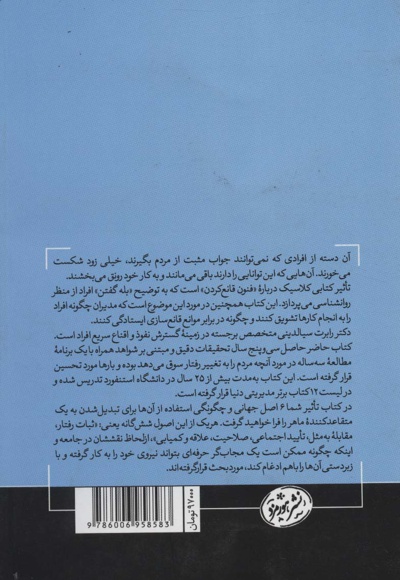 آن دسته از افرادی که نمی‌توانند جواب مثبت از مردم بگیرند، خیلی زود شکست
می‌خورند. آن‌هایی که این توانایی را دارند باقی می‌مانند و به کار خود رونق می‌بخشند.
تأثیر کتابی کلاسیک دربارهٔ «فنون قانع‌کردن» است که به توضیح «بله گفتن» افراد از منظر
روانشناسی می‌پردازد. این کتاب همچنین در مورد این موضوع است که مدیران چگونه افراد
را به انجام کارها تشویق کنند و چگونه در برابر موانع قانع‌سازی ایستادگی کنند.
دکتر رابرت سیالدینی متخصص برجسته در زمینهٔ گسترش نفوذ و اقناع سریع افراد است.
کتاب حاضر حاصل سی‌و‌پنج سال تحقیقات دقیق و مبتنی بر شواهد همراه با یک برنامهٔ
مطالعهٔ سه‌ساله در مورد آنچه مردم را به تغییر رفتار سوق می‌دهد بوده و بارها مورد تحسین
قرار گرفته است. این کتاب به‌مدت بیش از ۲۵ سال در دانشگاه استنفورد تدریس شده و
در لیست ۱۲ کتاب برتر مدیریتی دنیا قرار گرفته است.
در کتاب تأثیر شما ۶ اصل جهانی و چگونگی استفاده از آن‌ها برای تبدیل‌شدن به یک
متقاعدکنندهٔ ماهر را فرا خواهید گرفت. هریک از این اصول شش‌گانه یعنی: «ثبات رفتار،
مقابلهٔ به‌مثل، تأیید اجتماعی، صلاحیت، علاقه و کمیابی»، ازلحاظ نقششان در جامعه و
اینکه چگونه ممکن است یک مجاب‌گر حرفه‌ای بتواند نیروی خود را به کار گرفته و با
زبردستی آن‌ها را باهم ادغام کند، موردبحث قرارگرفته‌اند.
نشر هورمزد
۹۷۰۰۰ تومان
9 786006 958583